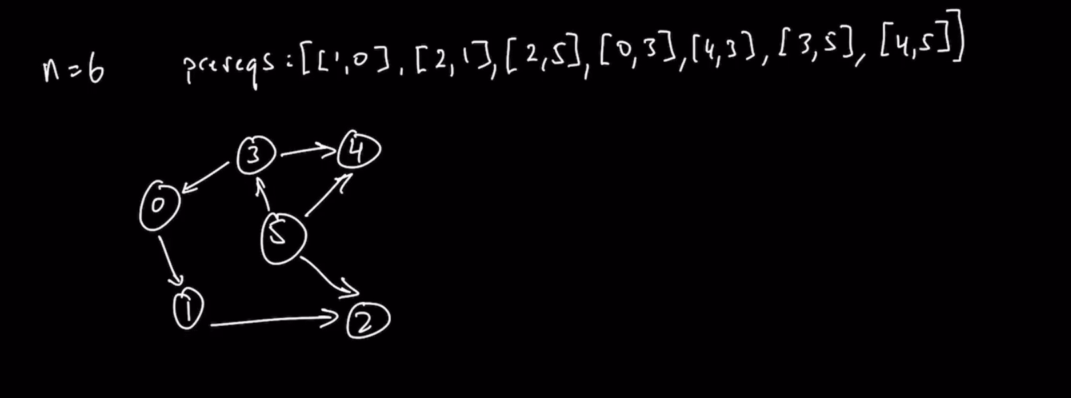 n=6 prereqs:[[1,0],[2,1],[2,5],[0,3],[4,3],[3,5],[4,5]]
3 4
0
5
1 2